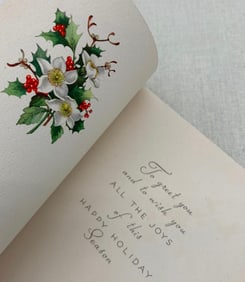 To greet you
and to wish you
ALL THE JOYS
of this
HAPPY HOLIDAY
Season